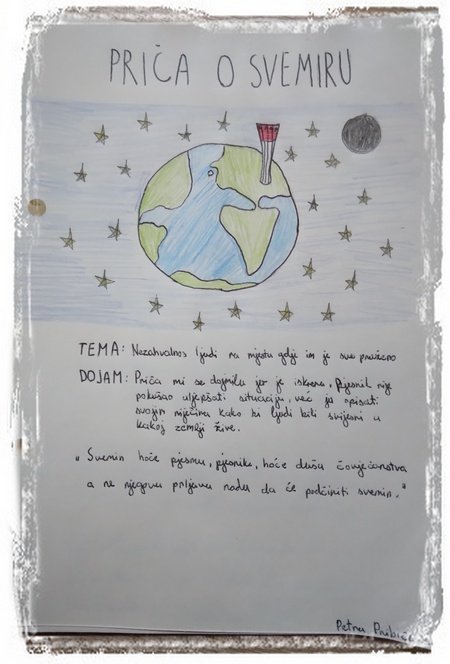 PRIČA O SVEMIRU
TEMA: Nezahvalnos ljudi na mjestu gdje im je sve pruženo
DOJAM: Priča mi se dojmila jer je iskrena, Pjesnik nije
pokušao uljepšati situaciju, već ju opisati
svojim riječima kako bi ljudi bili svijesni u
kakoj zemlji žive.
"Svemir hoće pjesmu, pjesnike, hoće dušu čovječanstva
a ne njegovu prljavu nadu da će podčiniti svemir."
Petra